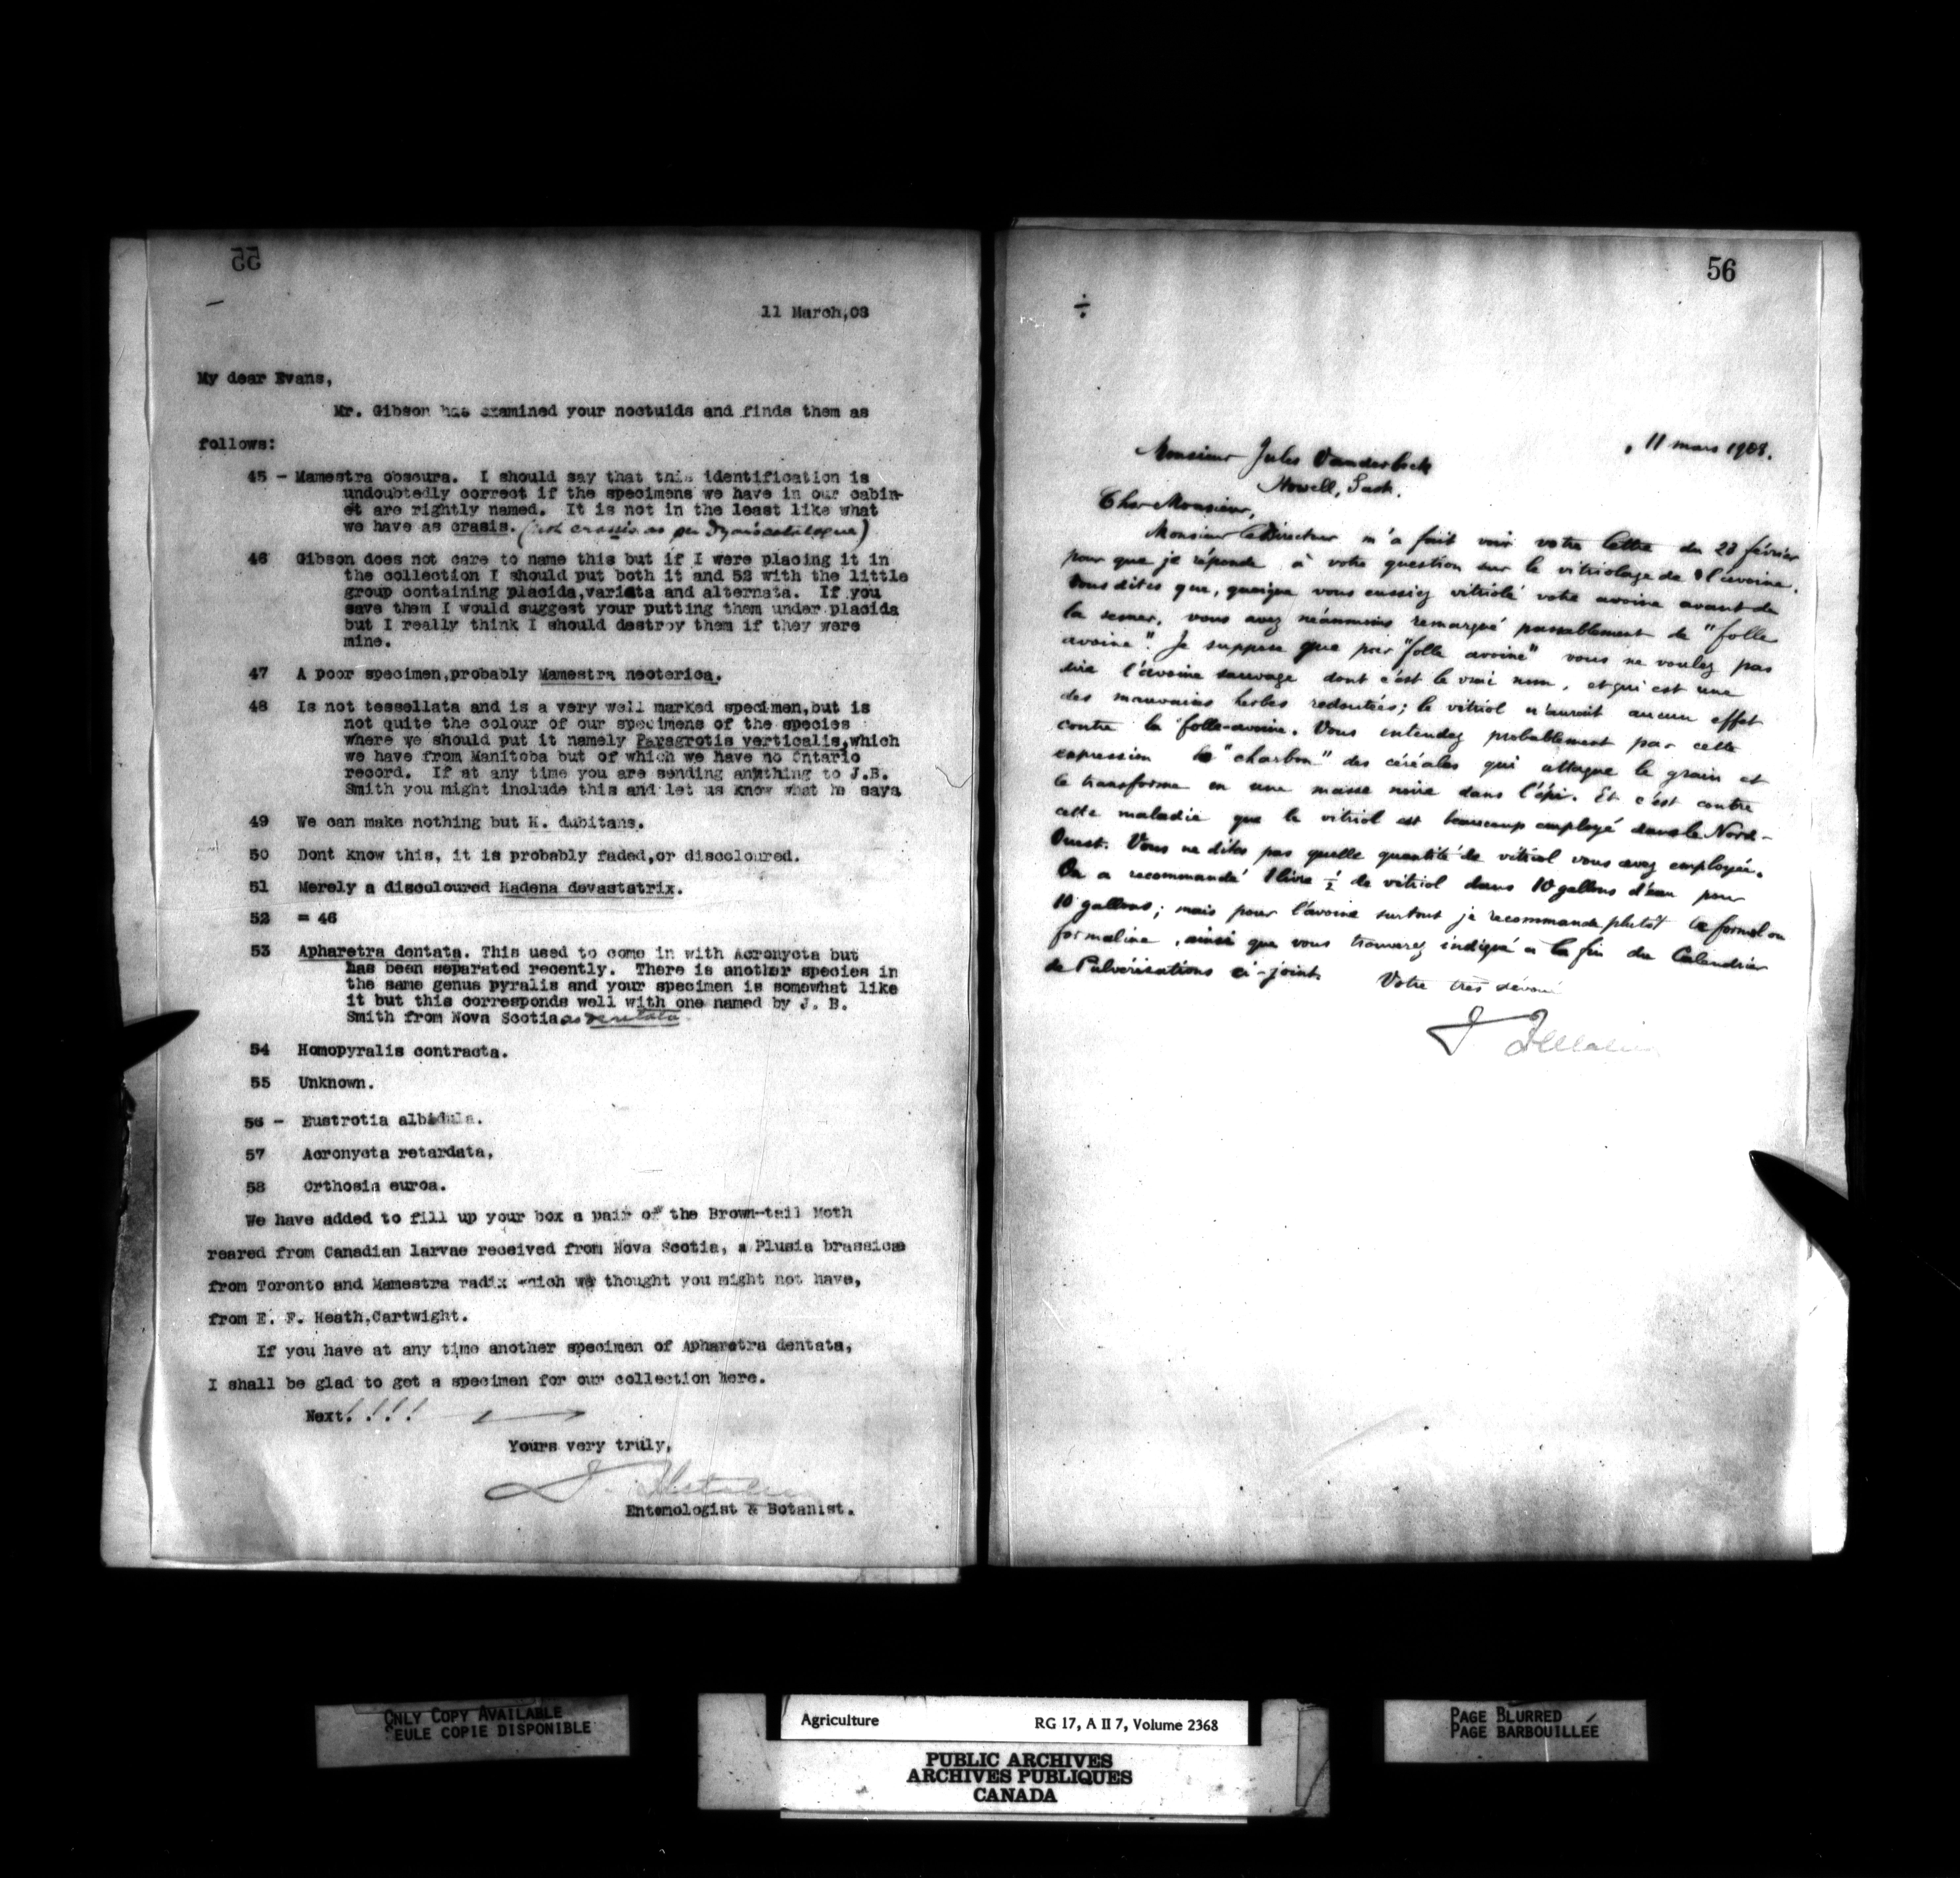 55
11 March,08
My dear Evans,
Mr. Gibson has examined your noctuids and finds them as
follows:
45 - Mamestra obscura. I should say that this identification is
undoubtedly correct if the specimens we have in our cabin-
et are rightly named. It is not in the least like what
we have as crasis. (not crassis as per Dyar's catalogue)
46 Gibson does not care to name this but if I were placing it in
the collection I should put both it and 52 with the little
group containing placida,variata and alternata. If you
save them I would suggest your putting them under placida
but I really think I should destroy them if they were
mine.
47 A poor specimen,probably Mamestra neoterica.
48 Is not tessellata and is a very well marked specimen,but is
not quite the colour of our specimens of the species
where we should put it namely Paragrotis verticalis,which
we have from Manitoba but of which we have no Ontario
record. If at any time you are sending anything to J.B.
Smith you might include this and let us know what he says
49 We can make nothing but H. dubitans.
50 Dont know this, it is probably faded,or discoloured.
51 Merely a discoloured Hadena devastatrix.
52 = 46
53 Apharetra dentata. This used to come in with Acronycta but
has been separated recently. There is another species in
the same genus pyralis and your specimen is somewhat like
it but this corresponds well with one named by J. B.
Smith from Nova Scotia as dentata.
54 Homopyralis contracta.
55 Unknown.
56 - Eustrotia albidula.
57 Acronycta retardata,
58 Orthosia euroa.
We have added to fill up your box a pair of the Brown-tail Moth
reared from Canadian larvae received from Nova Scotia, a Plusia brassicae
from Toronto and Mamestra radix which we thought you might not have,
from E. F. Heath,Cartwight.
If you have at any time another specimen of Apharetra dentata,
I shall be glad to get a specimen for our collection here.
Next!!!!
Yours very truly,
J. Fletcher
Entomologist & Botanist.
56
÷
11 mars 1908.
Monsieur Jules Vanderbeck
Howell, Sask.
Cher Monsieur,
Monsieur le Directeur m'a fait voir votre lettre du 28 février
pour que je réponde à votre question sur le vitriolage de l'avoine.
Vous dites que, quoique vous eussiez vitriolé votre avoine avant de
la semer, vous avez néanmoins remarqué passablement de "folle
avoine". Je suppose que par "folle avoine" vous ne voulez pas
dire l'avoine sauvage dont c'est le vrai nom, et qui est une
des mauvaises herbes redoutées; le vitriol n'aurait aucun effet
contre la folle-avoine. Vous entendez probablement par cette
expression le "charbon" des céréales qui attaque le grain et
le transforme en une masse noire dans l'épi. Et c'est contre
cette maladie que le vitriol est beaucoup employé dans le Nord-
Ouest. Vous ne dites pas quelle quantité de vitriol vous avez employée.
On a recommandé 1 livre ½ de vitriol dans 10 gallons d'eau pour
10 gallons; mais pour l'avoine surtout je recommande plutôt le formol ou
formaline, ainsi que vous trouverez indiqué à la fin du Calendrier
de Pulvérisations ci-joint. Votre très dévoué
J Fletcher
ONLY COPY AVAILABLE
SEULE COPIE DISPONIBLE
Agriculture RG 17, A II 7, Volume 2368
PUBLIC ARCHIVES
ARCHIVES PUBLIQUES
CANADA
PAGE BLURRED
PAGE BARBOUILLÉE